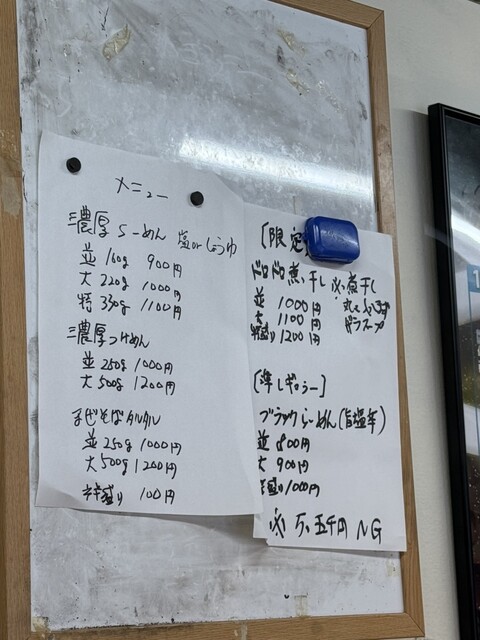 メニュー
濃厚らーめん 塩orしょうゆ
並 160g 900円
大 220g 1000円
特 330g 1100円
濃厚つけめん
並 250g 1000円
大 500g 1200円
まぜそばタルタル
並 250g 1000円
大 500g 1200円
特盛り 100円
[限定
ドロドロ煮干し ※煮干し
並 1000円
大 1100円
特盛り 1200円
ガラスープ
ブラックらーめん
並 800円
大 900円
特盛り 1000円
※ 万、五千円 NG